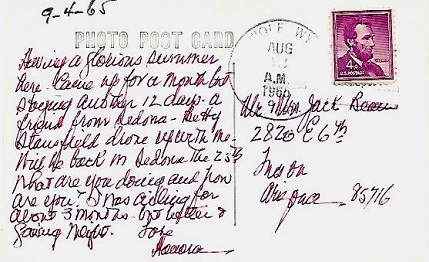 9-4-65
PHOTO POST CARD
Having a glorious summer
here. Came up for a month but
staying another 12 days. a
friend from Sedona - Betty
drove up with me.
Will be back in Sedona the 25th
What are you doing and how
are you? I was ailing for
about 3 months - but better &
Love
WOLF WY.
AUG
A.M.
1965
U.S. POSTAGE
Mr Mrs Jack
2820 E 6th
Tucson
Arizona 85716